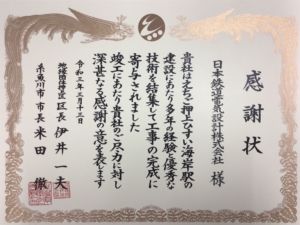 感謝状
日本鉄道電気設計株式会社 様
貴社はえちご押上ひすい海岸駅の
建設にあたり多年の経験と優秀な
技術を結集して工事の完成に
寄与されました
竣工にあたり貴社のご尽力に対し
深甚なる感謝の意を表します
令和三年三月十三日
区長 伊井一夫
糸魚川市 市長 米田徹